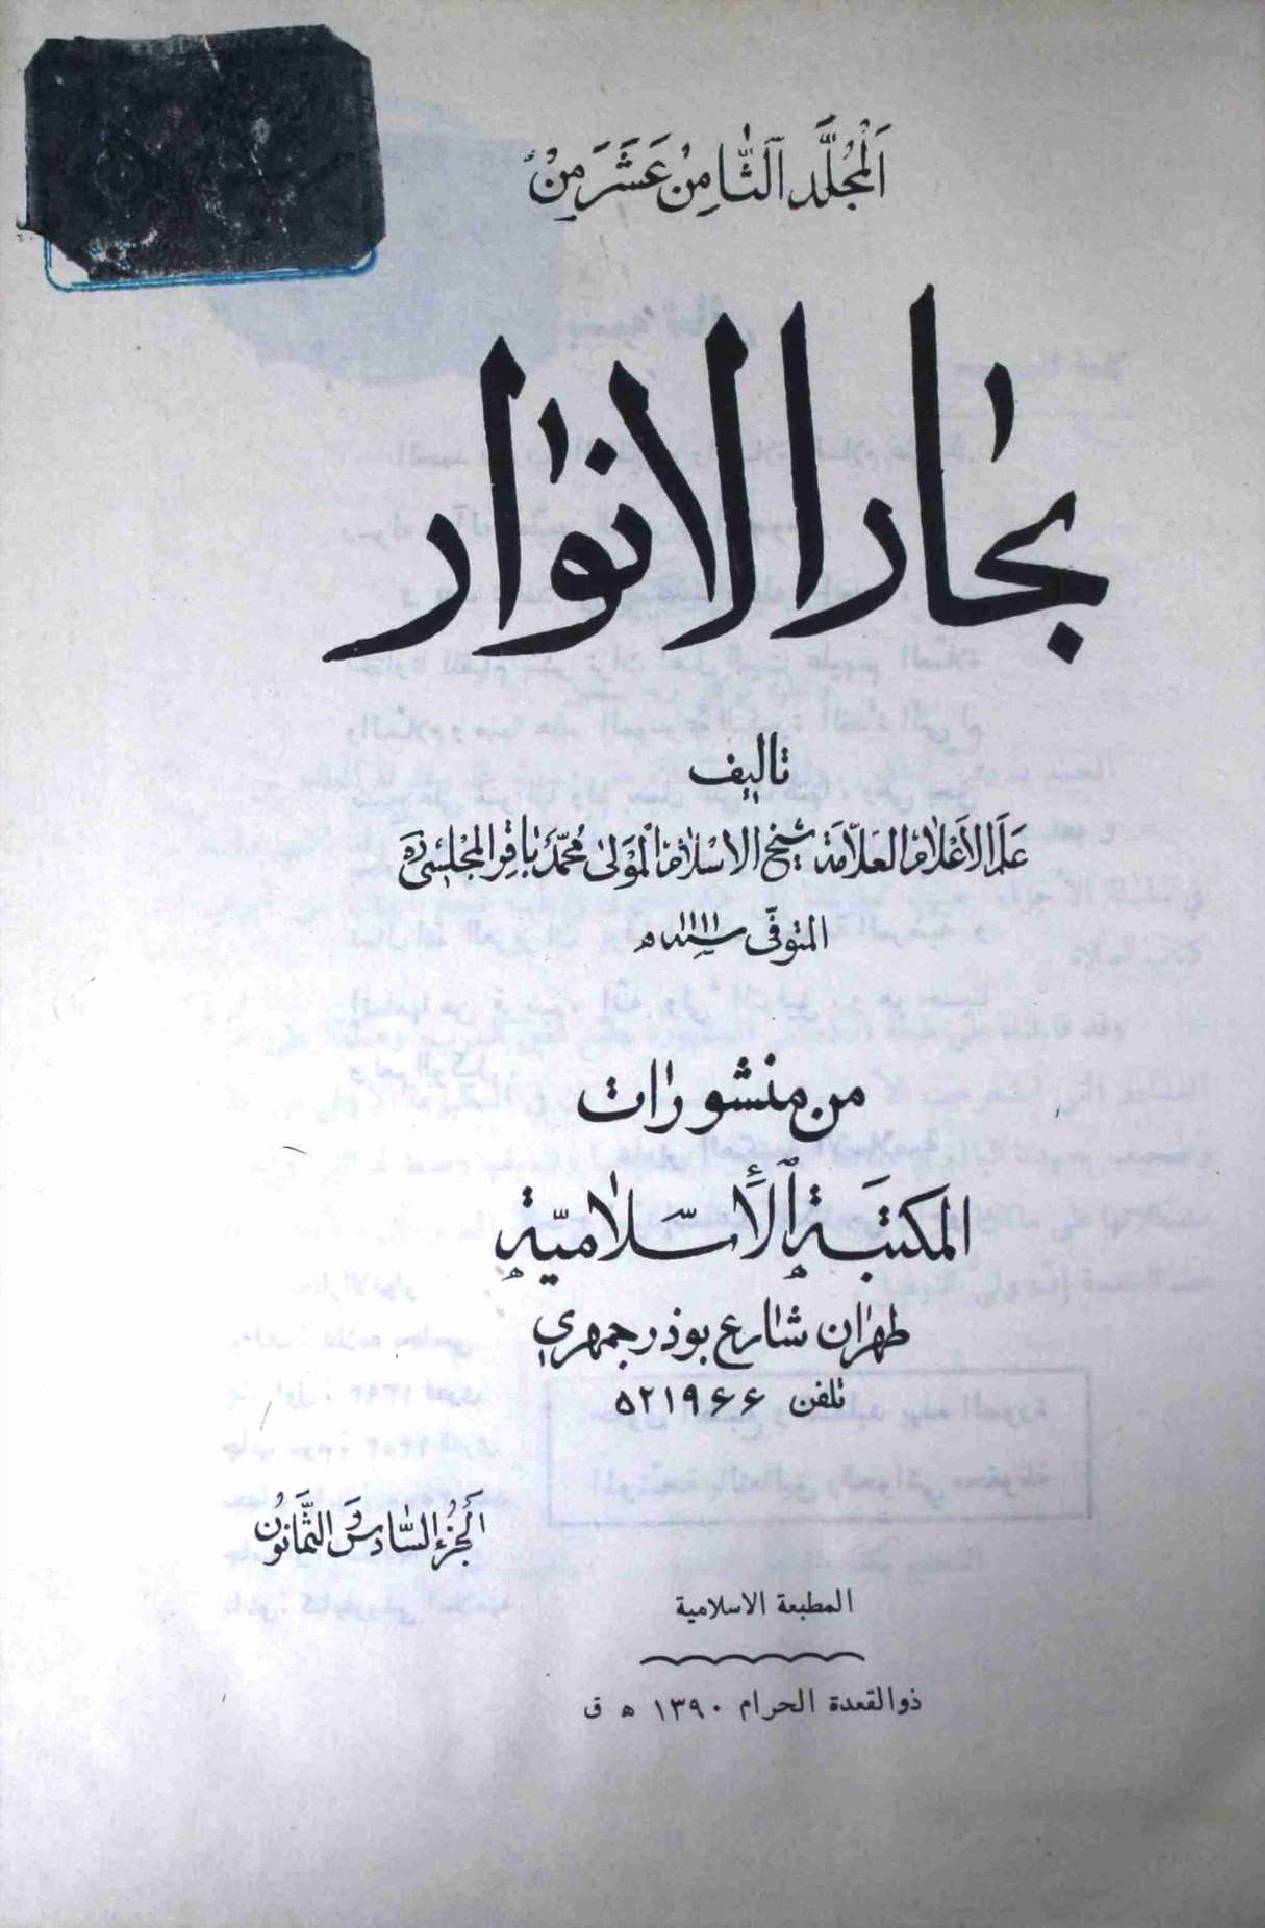 اَلْمُجَلَّد اَلثّامِنْ عَشَرَ مِنْ
بحار الانوار
تأليف
عَلَم الأَعْلامِ العَلاّمَة شيخ الاسْلامِ المَوْلىٰ مُحَمَّد بٰاقِر المَجْلِسي ره
المتوفّى سنة ١١١١ ه
من منشورات
المكتَبَة اَلأِسْلاميّة
طهران شارع بوذرجمهري
تلفن ۵۲۱۹۶۶
اَلجُزْء السّادِس وَ الثَّمانُون
المطبعة الاسلامية
ذوالقعدة الحرام ۱۳۹۰ ه ق